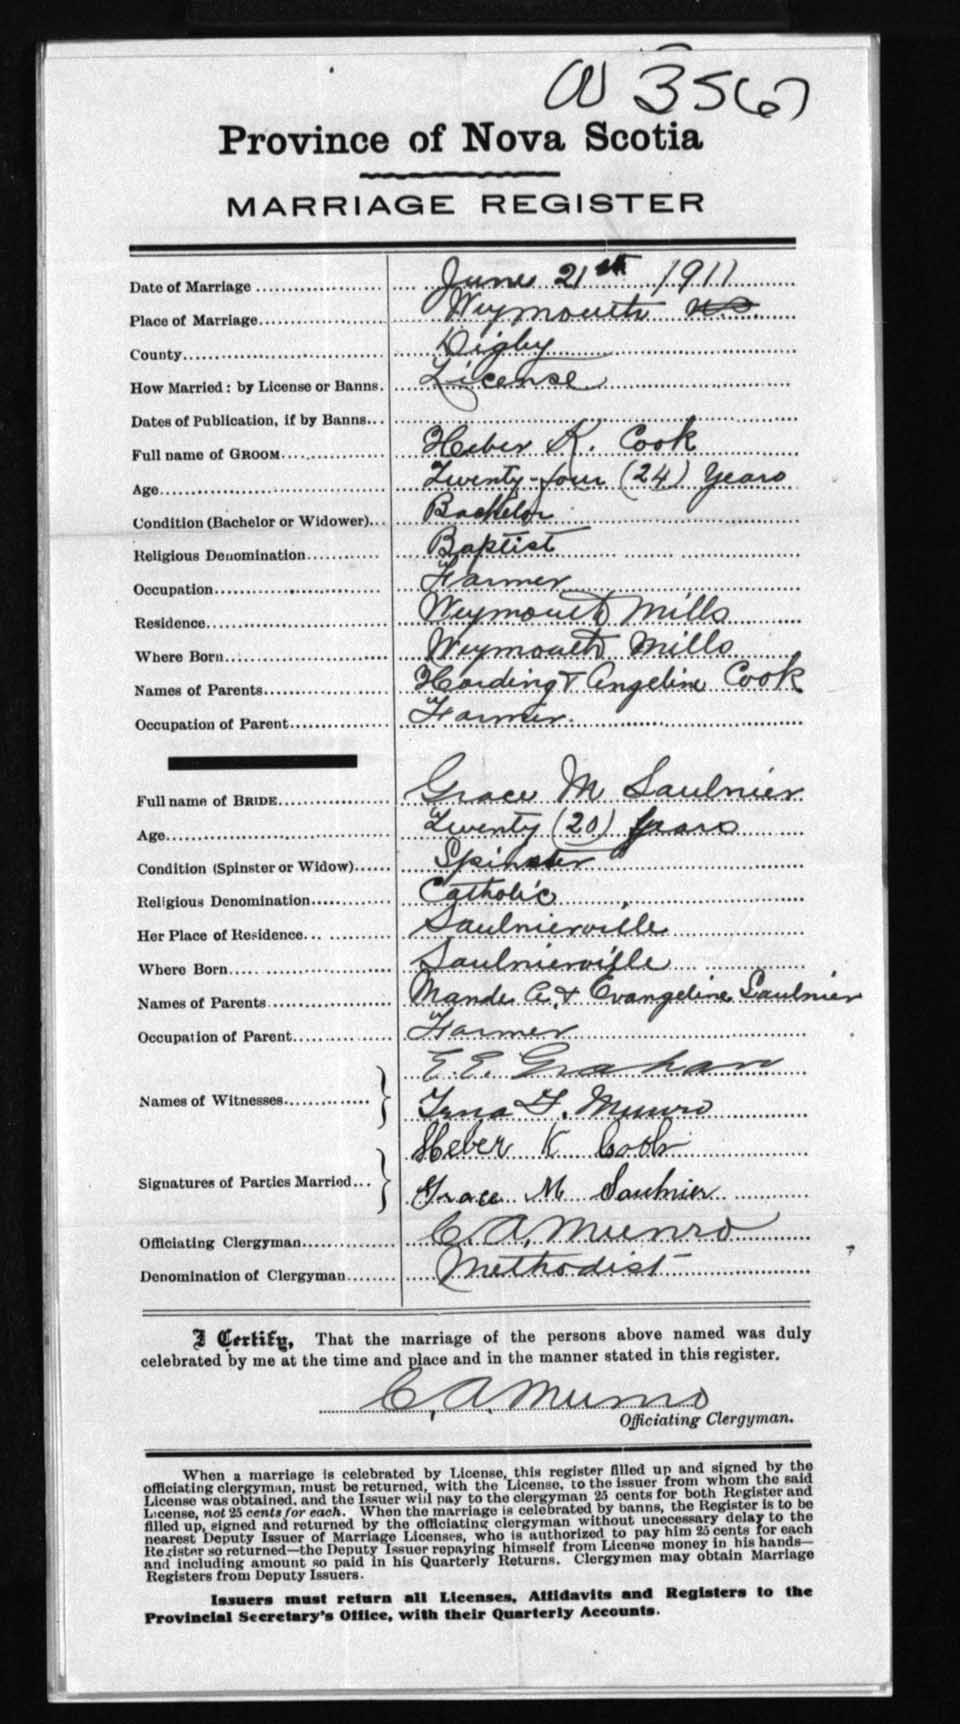 3567
Province of Nova Scotia
MARRIAGE REGISTER
Date of Marriage June 21st 1911
Place of Marriage Weymouth N.S.
County Digby
How Married: by License or Banns. License
Dates of Publication, if by Banns
Full name of GROOM Heber K. Cook
Age Twenty-four (24) years
Condition (Bachelor or Widower) Bachelor
Religious Denomination Baptist
Occupation Farmer
Residence Weymouth Mills
Where Born Weymouth Mills
Names of Parents Harding & Angeline Cook
Occupation of Parent Farmer.
Full name of BRIDE Grace M Saulnier
Age Twenty (20) years
Condition (Spinster or Widow) Spinster
Religious Denomination Catholic
Her Place of Residence Saulnierville
Where Born Saulnierville
Names of Parents Mande A. & Evangeline Saulnier
Occupation of Parent Farmer
Names of Witnesses E. E. Graham
F. Munro
Signatures of Parties Married Heber K Cook
Grace M Saulnier
Officiating Clergyman C. A. Munro
Denomination of Clergyman Methodist
I Certify, That the marriage of the persons above named was duly
celebrated by me at the time and place and in the manner stated in this register.
C. A. Munro
Officiating Clergyman.
When a marriage is celebrated by License, this register filled up and signed by the
officiating clergyman, must be returned, with the License, to the issuer from whom the said
License was obtained, and the Issuer will pay to the clergyman 25 cents for both Register and
License, not 25 cents for each. When the marriage is celebrated by banns, the Register is to be
filled up, signed and returned by the officiating clergyman without unnecessary delay to the
nearest Deputy Issuer of Marriage Licenses, who is authorized to pay him 25 cents for each
Register so returned—the Deputy Issuer repaying himself from License money in his hands—
and including amount so paid in his Quarterly Returns. Clergymen may obtain Marriage
Registers from Deputy Issuers.
Issuers must return all Licenses, Affidavits and Registers to the
Provincial Secretary's Office, with their Quarterly Accounts.